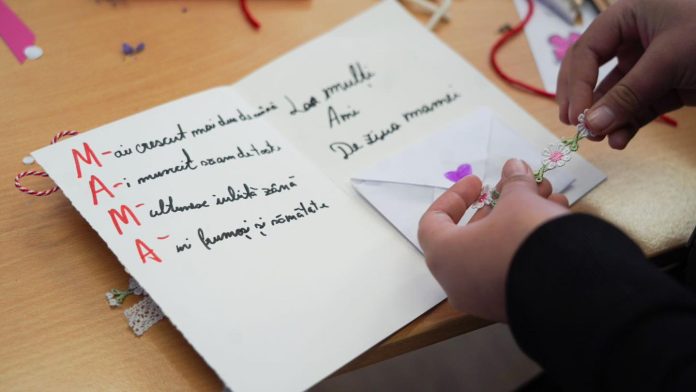 M-ai crescut mai de mână
A-i muncit de toate
Multumesc iubită zână
A- frumoși și sănătate
La mulți
Ani
De ziua mamei